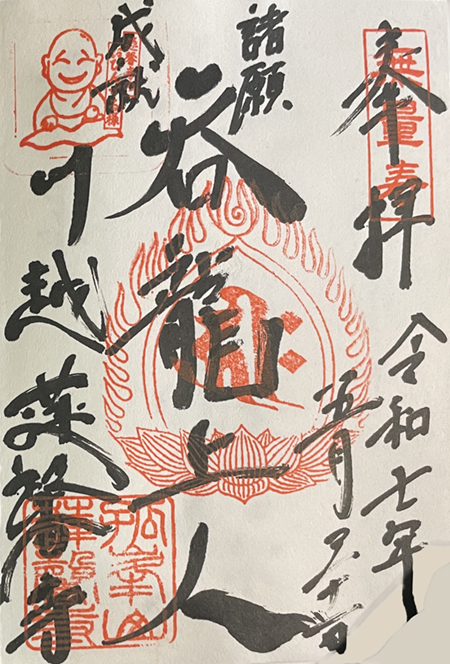 奉拝
無量寿
令和七年
五月二十
諸願
成就
呑龍上人
川越
蓮馨寺
孤峯山
蓮馨寺